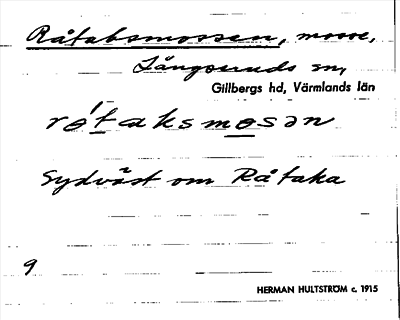 Råtabsmossen, mosse,
Långseruds sn,
Gillbergs hd, Värmlands län
ró̱taksmo̱sən
Sydväst om Råtaka
9
HERMAN HULTSTRÖM c. 1915